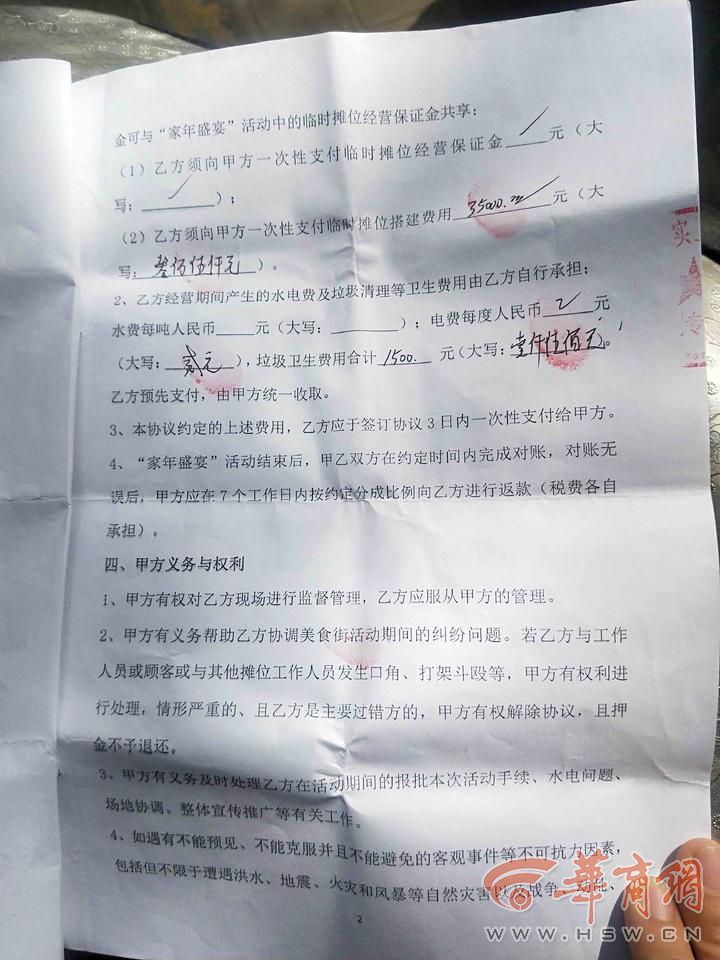 金可与“家年盛宴”活动中的临时摊位经营保证金共享：
（1）乙方须向甲方一次性支付临时摊位经营保证金 / 元（大
写： / ）；
（2）乙方须向甲方一次性支付临时摊位搭建费用 35000.00 元（大
写：叁佰伍仟元）。
2、乙方经营期间产生的水电费及垃圾清理等卫生费用由乙方自行承担；
水费每吨人民币____元（大写：______）；电费每度人民币 2 元
（大写：贰元），垃圾卫生费用合计 1500. 元（大写：壹仟伍佰元。
乙方预先支付，由甲方统一收取。
3、本协议约定的上述费用，乙方应于签订协议 3 日内一次性支付给甲方。
4、“家年盛宴”活动结束后，甲乙双方在约定时间内完成对账，对账无
误后，甲方应在 7 个工作日内按约定分成比例向乙方进行返款（税费各自
承担）。
四、甲方义务与权利
1、甲方有权对乙方现场进行监督管理，乙方应服从甲方的管理。
2、甲方有义务帮助乙方协调美食街活动期间的纠纷问题。若乙方与工作
人员或顾客或与其他摊位工作人员发生口角、打架斗殴等，甲方有权利进
行处理，情形严重的、且乙方是主要过错方的，甲方有权解除协议，且押
金不予退还。
3、甲方有义务及时处理乙方在活动期间的报批本次活动手续、水电问题、
场地协调、整体宣传推广等有关工作。
4、如遇有不能预见、不能克服并且不能避免的客观事件等不可抗力因素，
包括但不限于遭遇洪水、地震、火灾和风暴等自然灾害以及战争、动乱、
2
華商網
WWW.HSW.CN